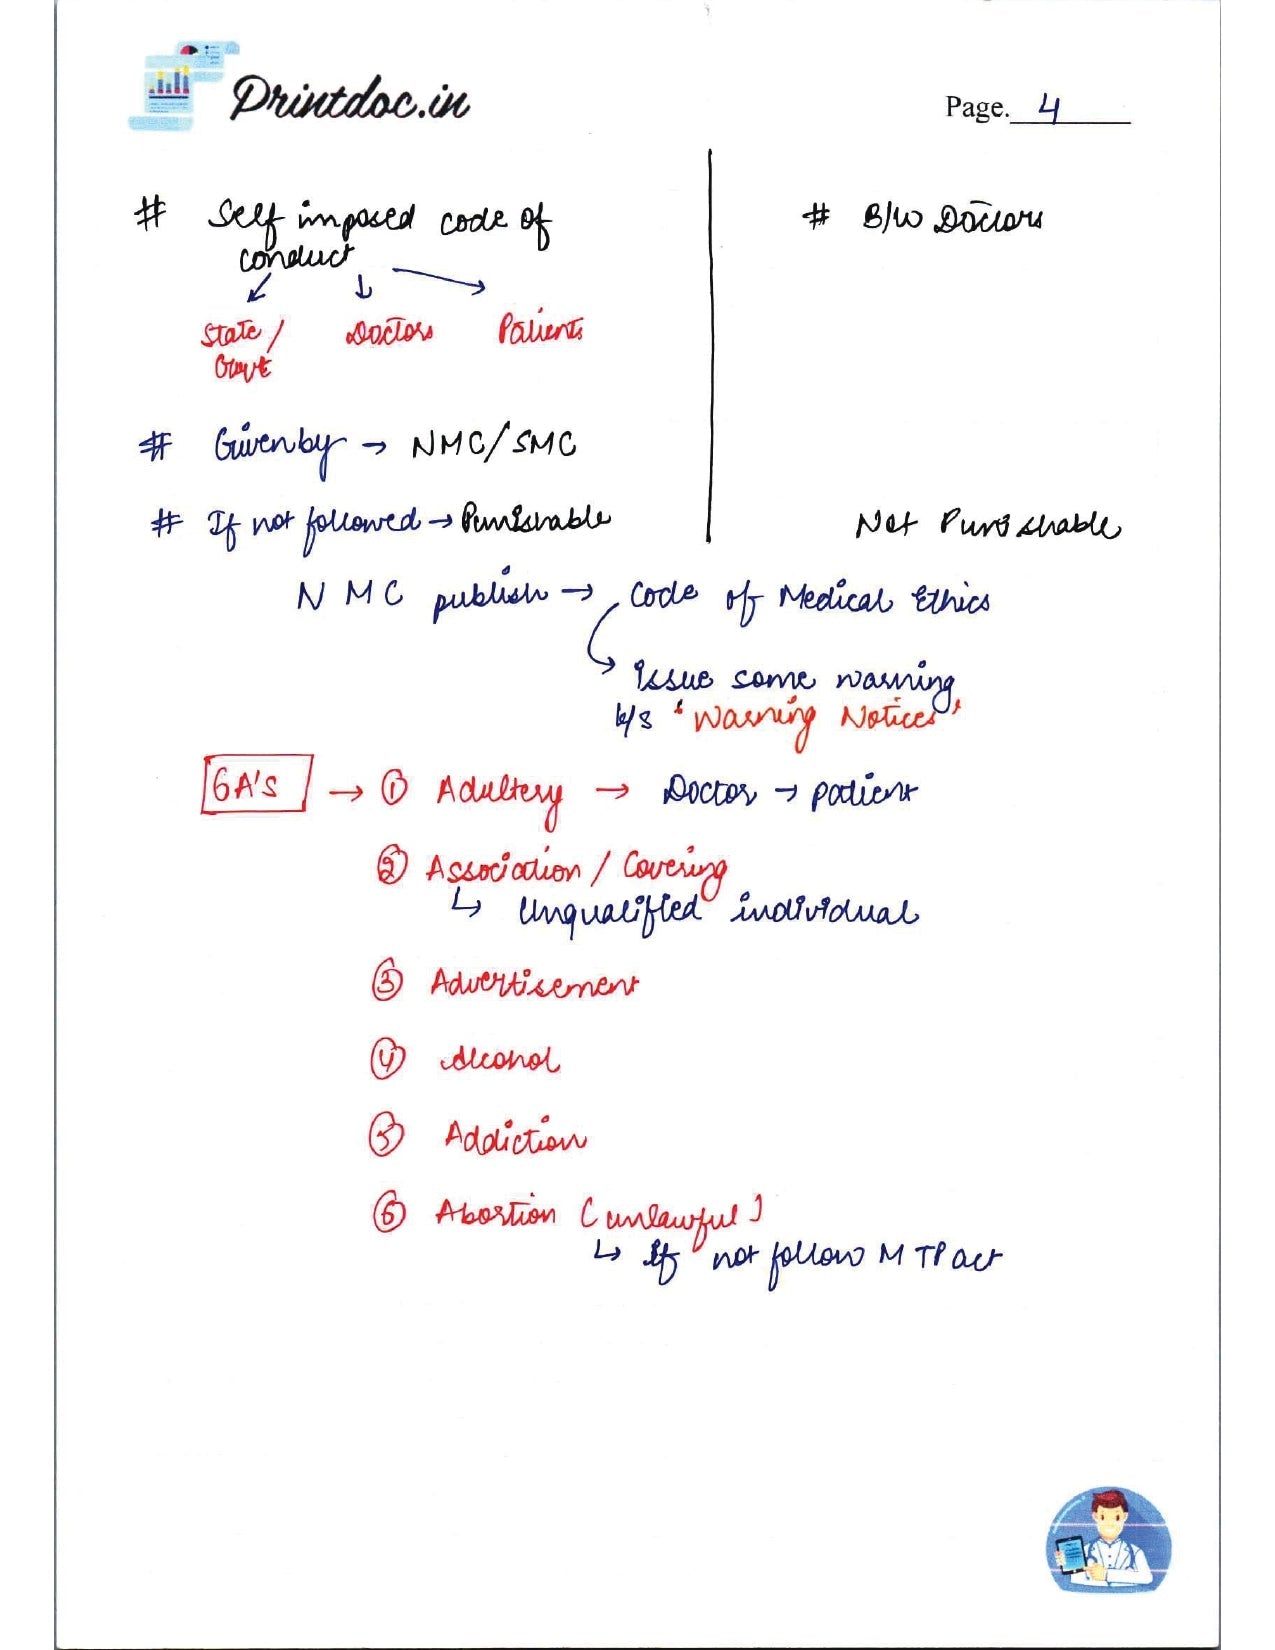 Printdoc.in
Page. 4
# Self imposed code of
conduct
State/ Doctors Patients
Govt
# B/w Doctors
# Given by → NMC/SMC
# If not followed → Punishable
Not Punishable
NMC publish → Code of Medical Ethics
Issue some warning
k/s 'Warning Notices'
6A's → ① Adultery → Doctor → patient
② Association / Covering
↳ Unqualified individual
③ Advertisement
④ Alcohol
⑤ Addiction
⑥ Abortion (unlawful)
↳ If not follow MTP act